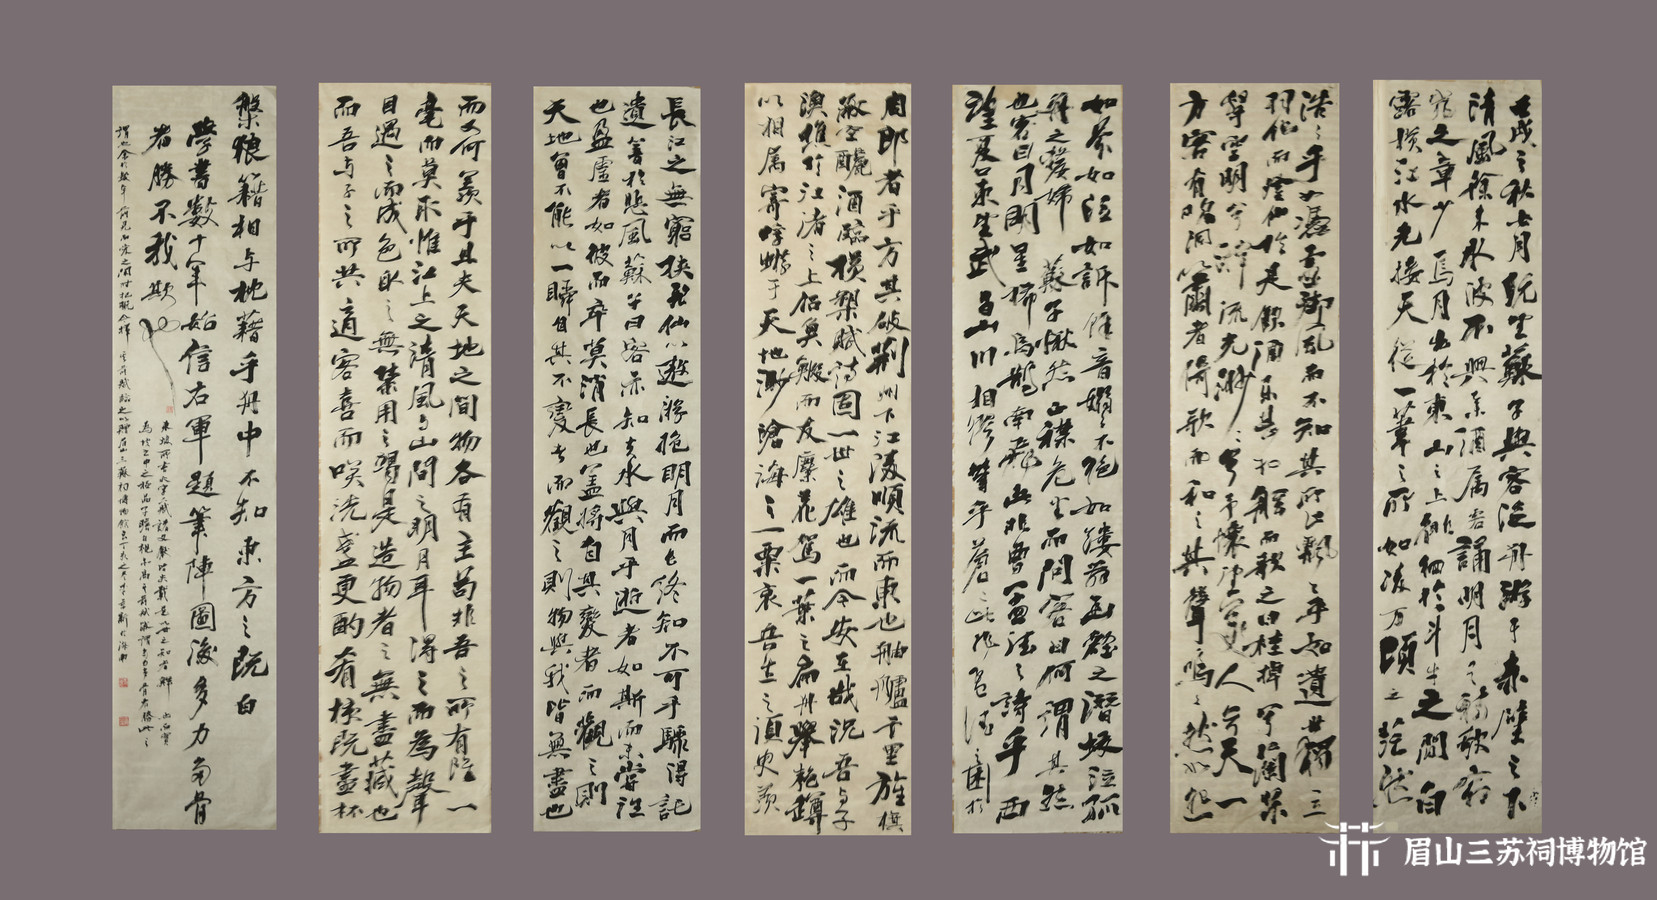 壬戌之秋七月既望蘇子與客泛舟游于赤壁之下
清風徐來水波不興舉酒屬客誦明月之詩歌窈
窕之章少焉月出於東山之上徘徊於斗牛之間白
露橫江水光接天從一葦之所如凌万頃之茫然
浩浩乎如馮虛御風而不知其所止飄飄乎如遺世獨立
羽化而登仙於是飲酒樂甚扣舷而歌之曰桂棹兮蘭槳
擊空明兮泝流光渺渺兮予懷望美人兮天一
方客有吹洞簫者倚歌而和之其聲嗚嗚然如怨
如慕如泣如訴餘音嫋嫋不絕如縷舞幽壑之潛蛟泣孤
舟之嫠婦蘇子愀然正襟危坐而問客曰何謂其然
也客曰月明星稀烏鵲南飛此非曹孟德之詩乎西
望夏口東望武昌山川相繆鬱乎蒼蒼此非孟德之困於
周郎者乎方其破荊州下江陵順流而東也舳艫千里旌旗
蔽空釃酒臨江橫槊賦詩固一世之雄也而今安在哉況吾與子
漁樵於江渚之上侶魚鰕而友麋鹿駕一葉之扁舟舉匏罇
以相屬寄蜉蝣于天地渺滄海之一粟哀吾生之須臾羨
長江之無窮挾飛仙以遨游抱明月而長終知不可乎驟得託
遺響於悲風蘇子曰客亦知夫水與月乎逝者如斯而未嘗往
也盈虛者如彼而卒莫消長也蓋將自其變者而觀之則
天地曾不能以一瞬自其不變者而觀之則物與我皆無盡也
而又何羨乎且夫天地之間物各有主苟非吾之所有雖一
毫而莫取惟江上之清風與山間之明月耳得之而為聲
目遇之而成色取之無禁用之不竭是造物者之無盡藏也
而吾與子之所共適客喜而笑洗盞更酌肴核既盡杯
盤狼籍相与枕藉乎舟中不知東方之既白
學書數十年始信右軍題筆陣圖後多力命骨
者勝不我欺
眉山三苏祠博物馆